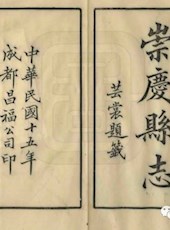 崇慶縣志
芸裳題籤
中華民國十五年
成都昌福公司印